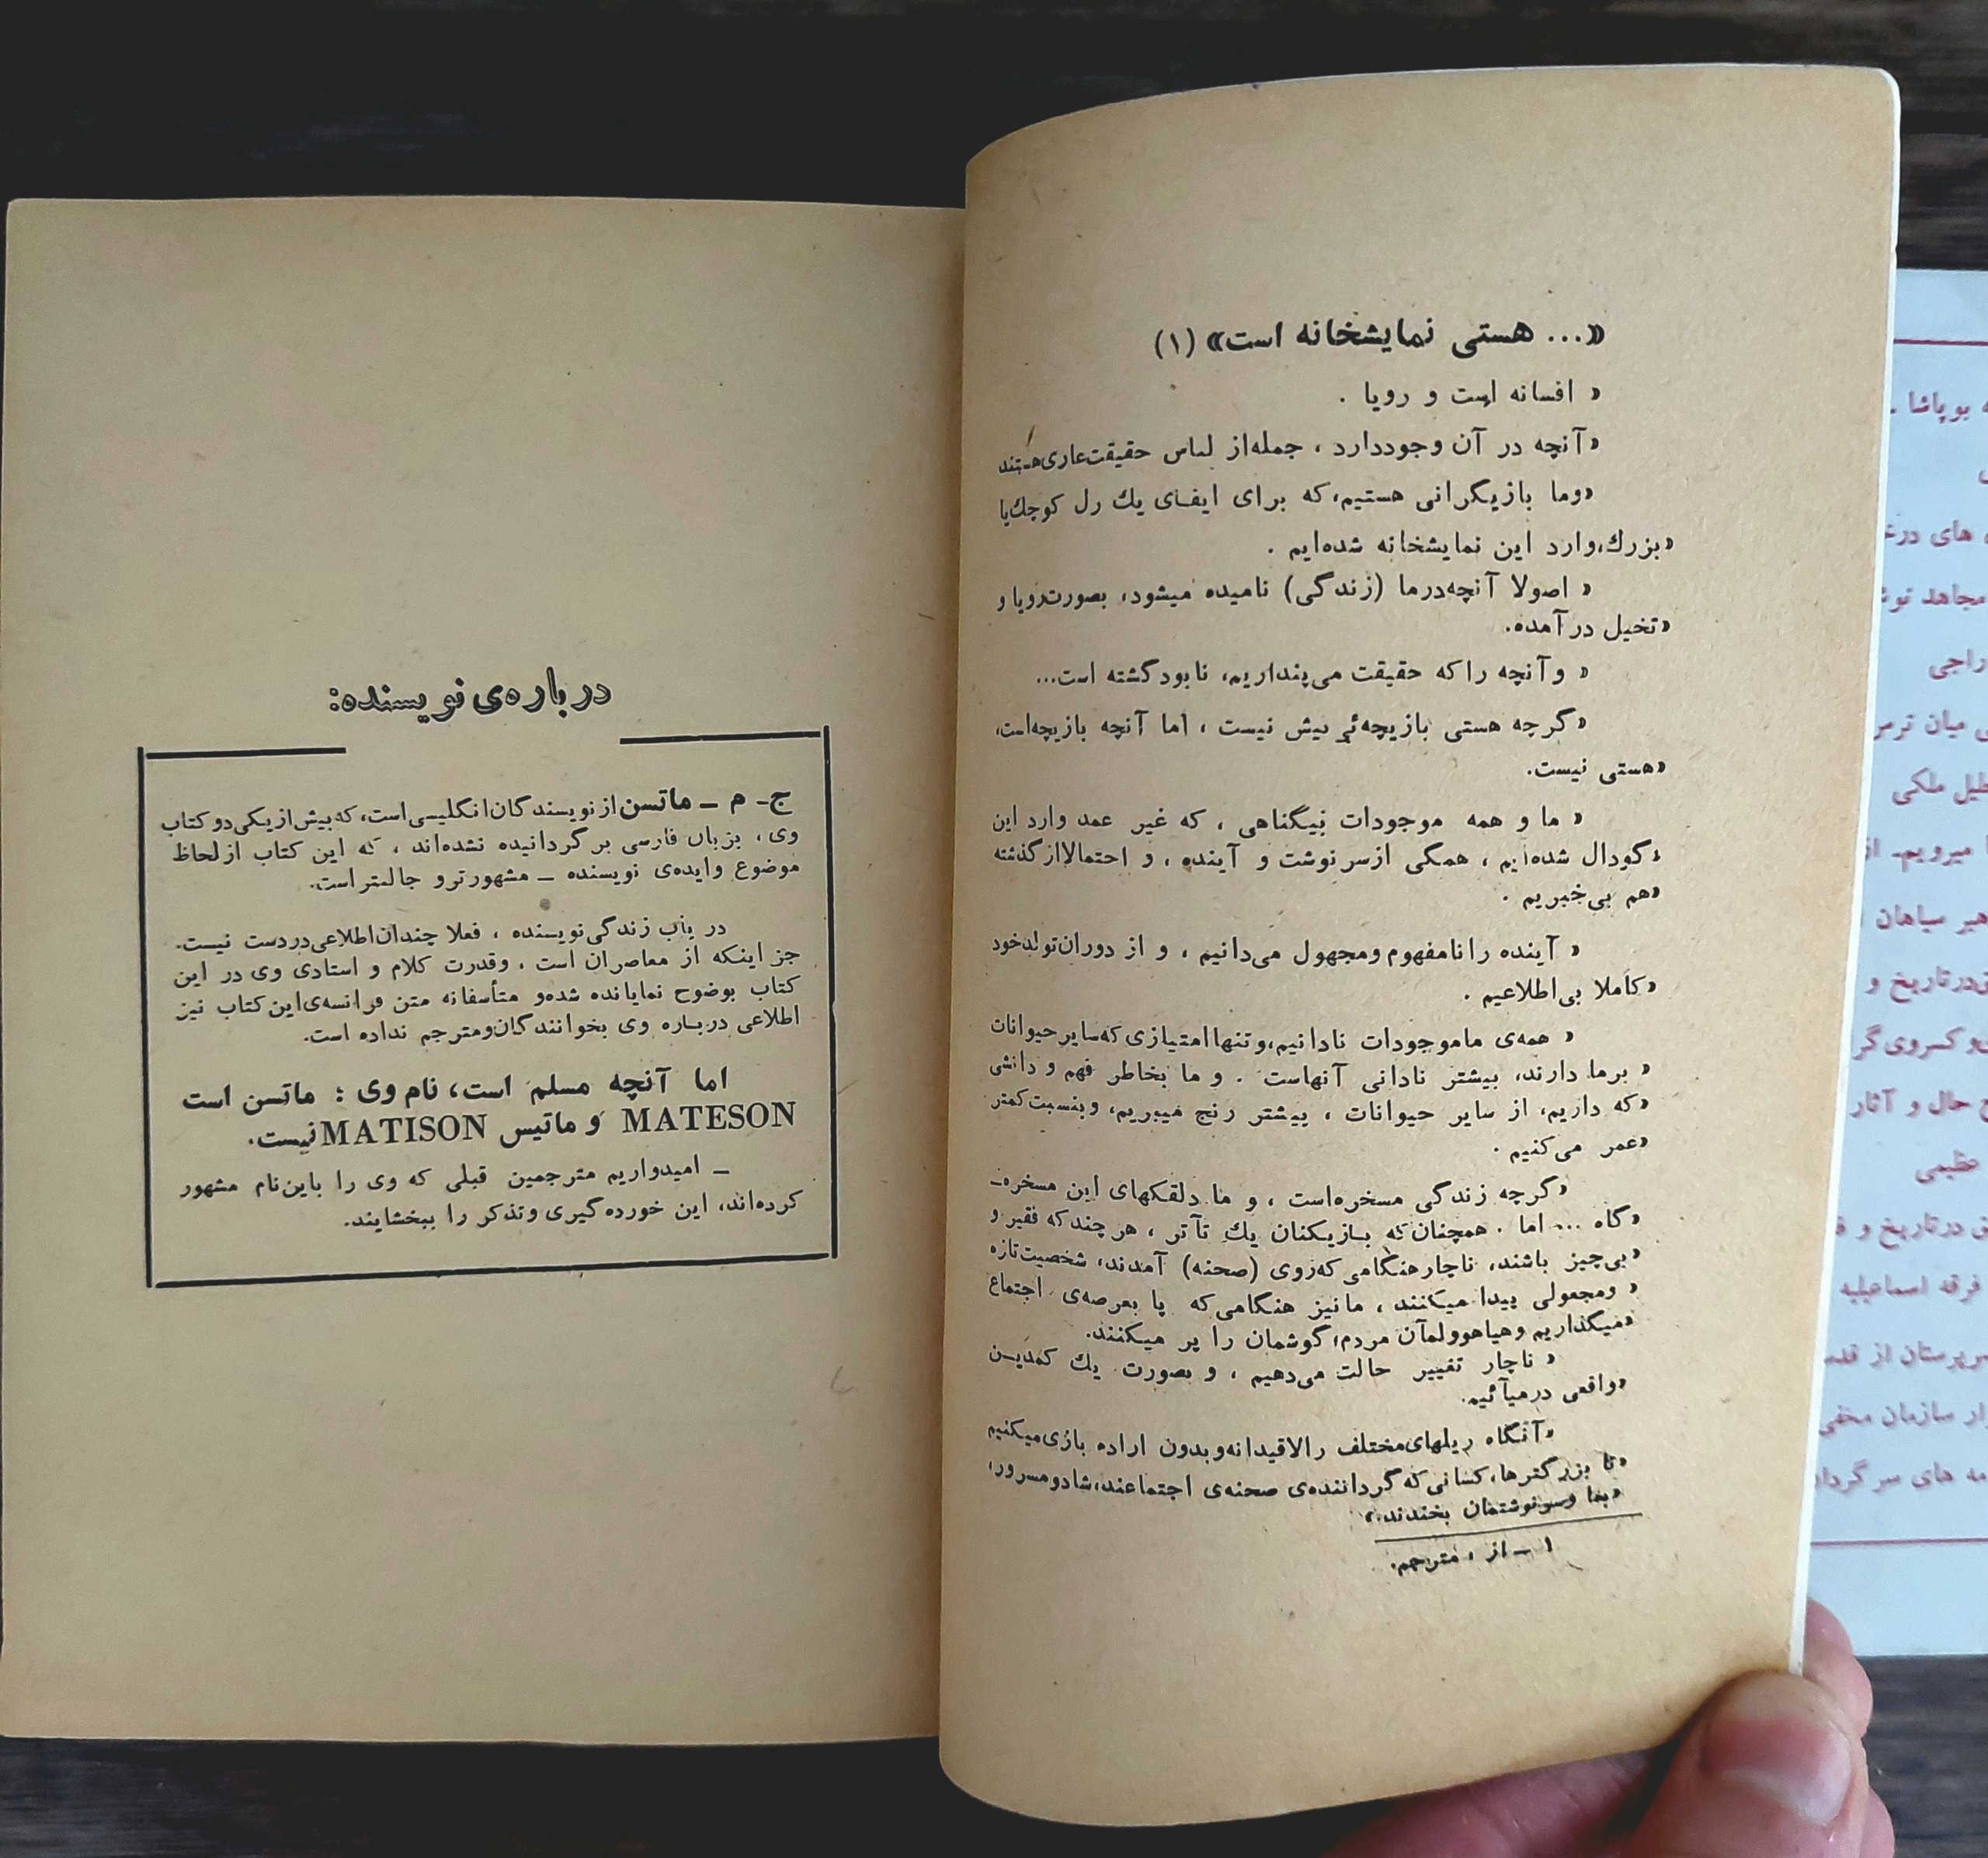 «... هستی نمایشخانه است» (۱)
« افسانه است و رویا .
«آنچه در آن وجوددارد ، جمله‌از لباس حقیقت‌عاری‌هستند
«وما بازیگرانی هستیم،که برای ایفای یك رل کوچك‌یا
«بزرك،وارد این نمایشخانه شده‌ایم .
« اصولا آنچه‌درما (زندگی) نامیده میشود، بصورت‌رویا و
«تخیل درآمده.
« وآنچه راکه حقیقت می‌پنداریم، نابودگشته است...
«گرچه هستی بازیچه‌ئی بیش نیست ، اما آنچه بازیچه‌است،
«هستی نیست.
« ما و همه موجودات بیگناهی ، که غیر عمد وارد این
«گودال شده‌ایم ، همگی ازسرنوشت و آینده ، و احتمالاازگذشته
«هم بی‌خبریم .
« آینده رانامفهوم ومجهول می‌دانیم ، و از دوران‌تولدخود
«کاملا بی‌اطلاعیم .
« همه‌ی ماموجودات نادانیم،وتنهاامتیازی که‌سایرحیوانات
« برما دارند، بیشتر نادانی آنهاست . و ما بخاطر فهم و دانشی
«که داریم، از سایر حیوانات ، بیشتر رنج میبریم، وبنسبت‌کمتر
«عمر می‌کنیم .
«گرچه زندگی مسخره‌است ، و ما دلقکهای این مسخره‌ـ
«گاه ... اما . همچنان‌که بازیکنان یك تآتر ، هرچندکه فقیر و
«بی‌چیز باشند، ناچارهنگامی که‌روی (صحنه) آمدند، شخصیت‌تازه
« ومجعولی پیدا میکنند ، مانیز هنگامی‌که پا بعرصه‌ی اجتماع
«میگذاریم وهیاهوولمآن مردم،گوشمان را پر میکنند.
« ناچار تغییر حالت می‌دهیم ، و بصورت یك کمدین
«واقعی درمیآئیم.
«آنگاه رلهای‌مختلف رالاقیدانه‌وبدون اراده بازی‌میکنیم
«تا بزرگترها،کسانی‌که گرداننده‌ی صحنه‌ی اجتماعند،شادومسرور،
«بما وسرنوشتمان بخندند.»
۱ ـ از ، مترجم.
درباره‌ی نویسنده:
ج‌ـ م ـ ماتسن ازنویسندگان‌انگلیسی‌است،که‌بیش‌ازیکی‌دوکتاب
وی ، بزبان فارسی برگردانیده نشده‌اند ، که این کتاب ازلحاظ
موضوع وایده‌ی نویسنده ـ مشهورترو جالبتراست.
در باب زندگی‌نویسنده ، فعلا چندان‌اطلاعی‌دردست نیست.
جز اینکه از معاصران است ، وقدرت کلام و استادی وی در این
کتاب بوضوح نمایانده شده‌و متأسفانه متن فرانسه‌ی‌این‌کتاب نیز
اطلاعی درباره وی بخوانندگان‌ومترجم نداده است.
اما آنچه مسلم است، نام وی : ماتسن است
MATESON و ماتیس MATISON نیست.
ـ امیدواریم مترجمین قبلی که وی را باین‌نام مشهور
کرده‌اند، این خورده‌گیری وتذکر را ببخشایند.
بوپاشا
های
مجاهد
راجی
میان
ملکی
میرویم-
سیاهان
درتاریخ و
کسروی
حال و آثار
عظیمی
درتاریخ و
فرقه اسماعیلیه
سرپرستان از
سازمان مخفی
های